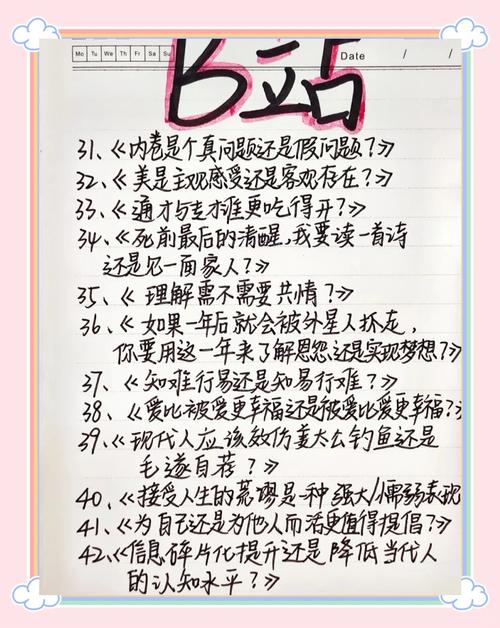 Mo Tu We Th Fr Sa Su
Date / /
B站
31、《内卷是个真问题还是假问题?》
32、《美是主观感受还是客观存在?》
33、《通才与专才谁更吃得开?》
34、《死前最后的清醒,我要读一首诗
还是见一面家人?》
35、《理解需不需要共情?》
36、《如果一年后就会被外星人抓走,
你要用这一年来了解恩怨还是实现梦想?》
37、《知难行易还是知易行难?》
38、《爱比被爱更幸福还是被爱比爱更幸福?》
39、《现代人应该效仿姜太公钓鱼还是
毛遂自荐?》
40、《接受人生的荒谬是一种强大/懦弱表现
41、《为自己还是为他人而活更值得提倡?》
42、《信息碎片化提升还是降低当代人
的认知水平?》